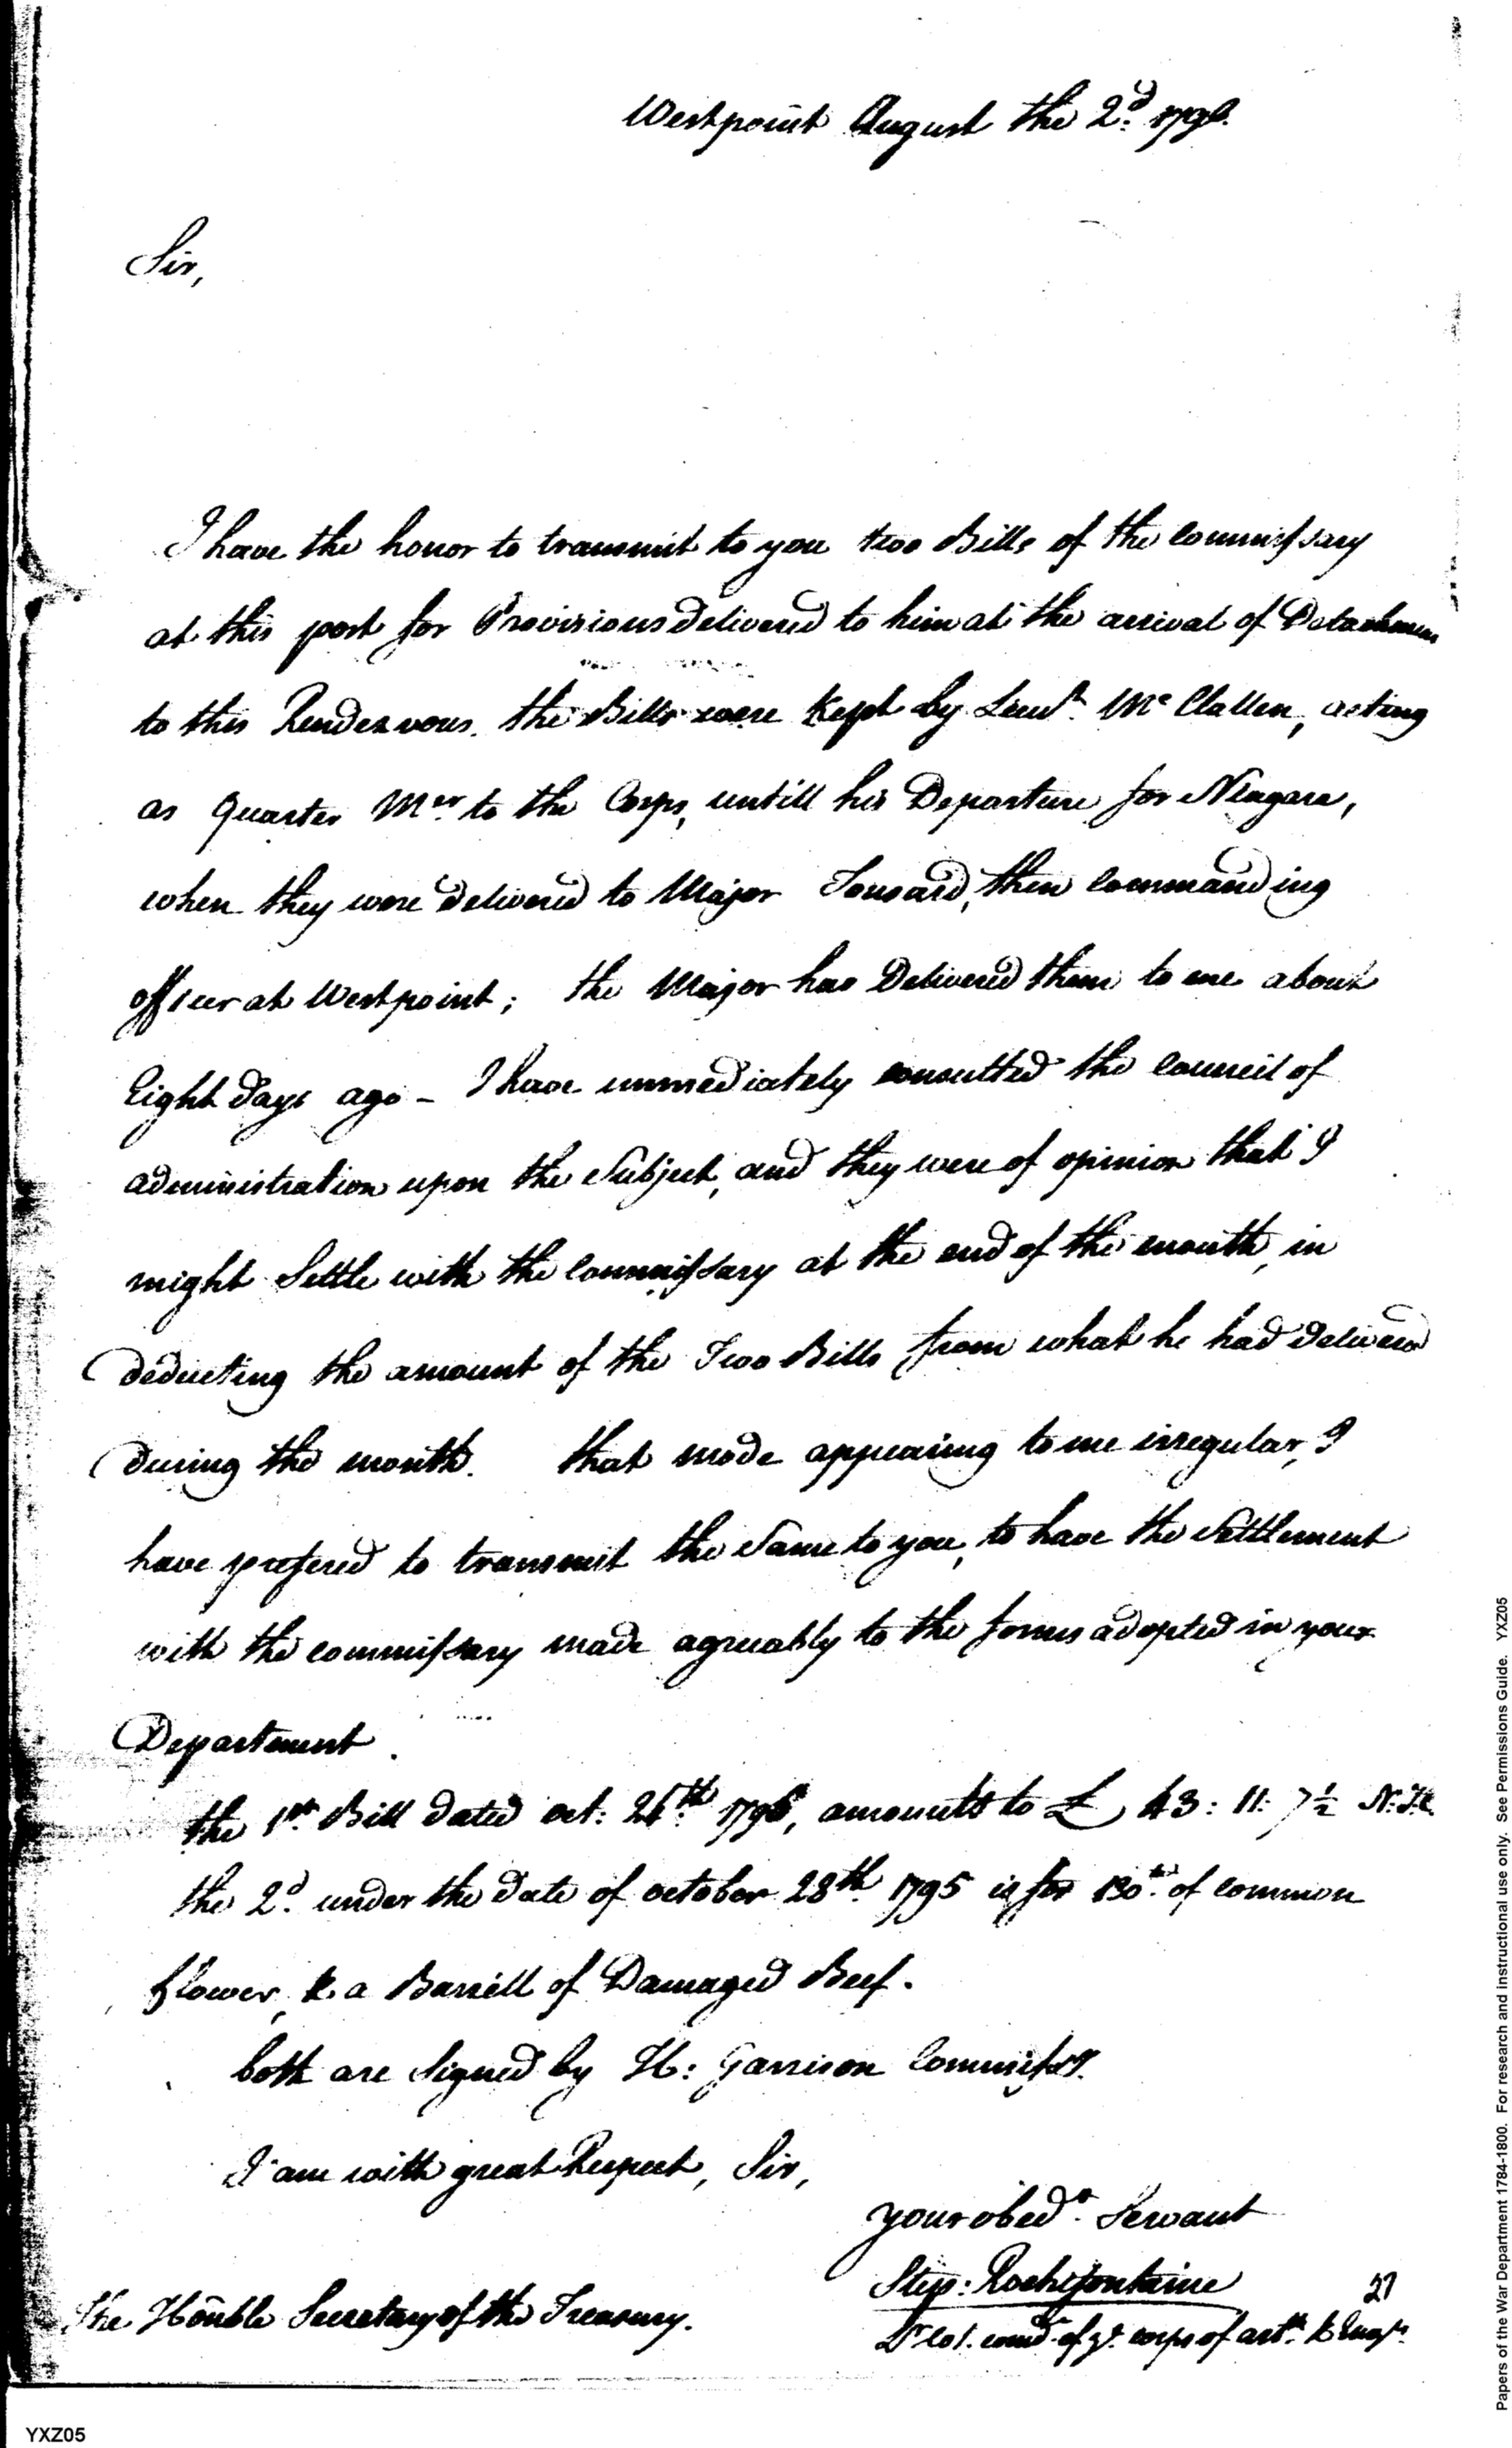 Westpoint August the 2d. 1796.
Sir,
I have the honor to transmit to you two Bills of the commissary
at this post for Provisions Delivered to him at the arrival of Detachmen
to this Rendezvous. the Bills were Kept by Lieut. Mc Clallen, acting
as Quarter Mer. to the Corps, untill his Departure for Niagara,
when they were delivered to Major Tousard, then commanding
officer at Westpoint; the Major has Delivered them to me about
Eight days ago - I have immediately consulted the council of
administration upon the Subject, and they were of opinion that I
might Settle with the commissary at the end of the month, in
deducting the amount of the Two Bills from what he had delivered
during the month. that mode appearing to me irregular, I
have prefered to transmit the Same to you, to have the Settlement
with the commissary made agreably to the forms adopted in your
Department.
the 1st Bill dated oct: 26th. 1795, amounts to £ 43: 11: 7½
the 2d. under the date of october 28th. 1795 is for 130 of common
flower, & a Barrell of Damaged Beef.
both are Signed by H: Garrison Commissy.
I am with great Respect, Sir,
your obedt. Servant
Step: Rochefontaine
27
Lt. col. comdt. of ye. corps of arty. & Engrs.
The Honble Secretary of the Treasury.
Papers of the War Department 1784-1800. For research and instructional use only. See Permissions Guide. YXZ05
YXZ05